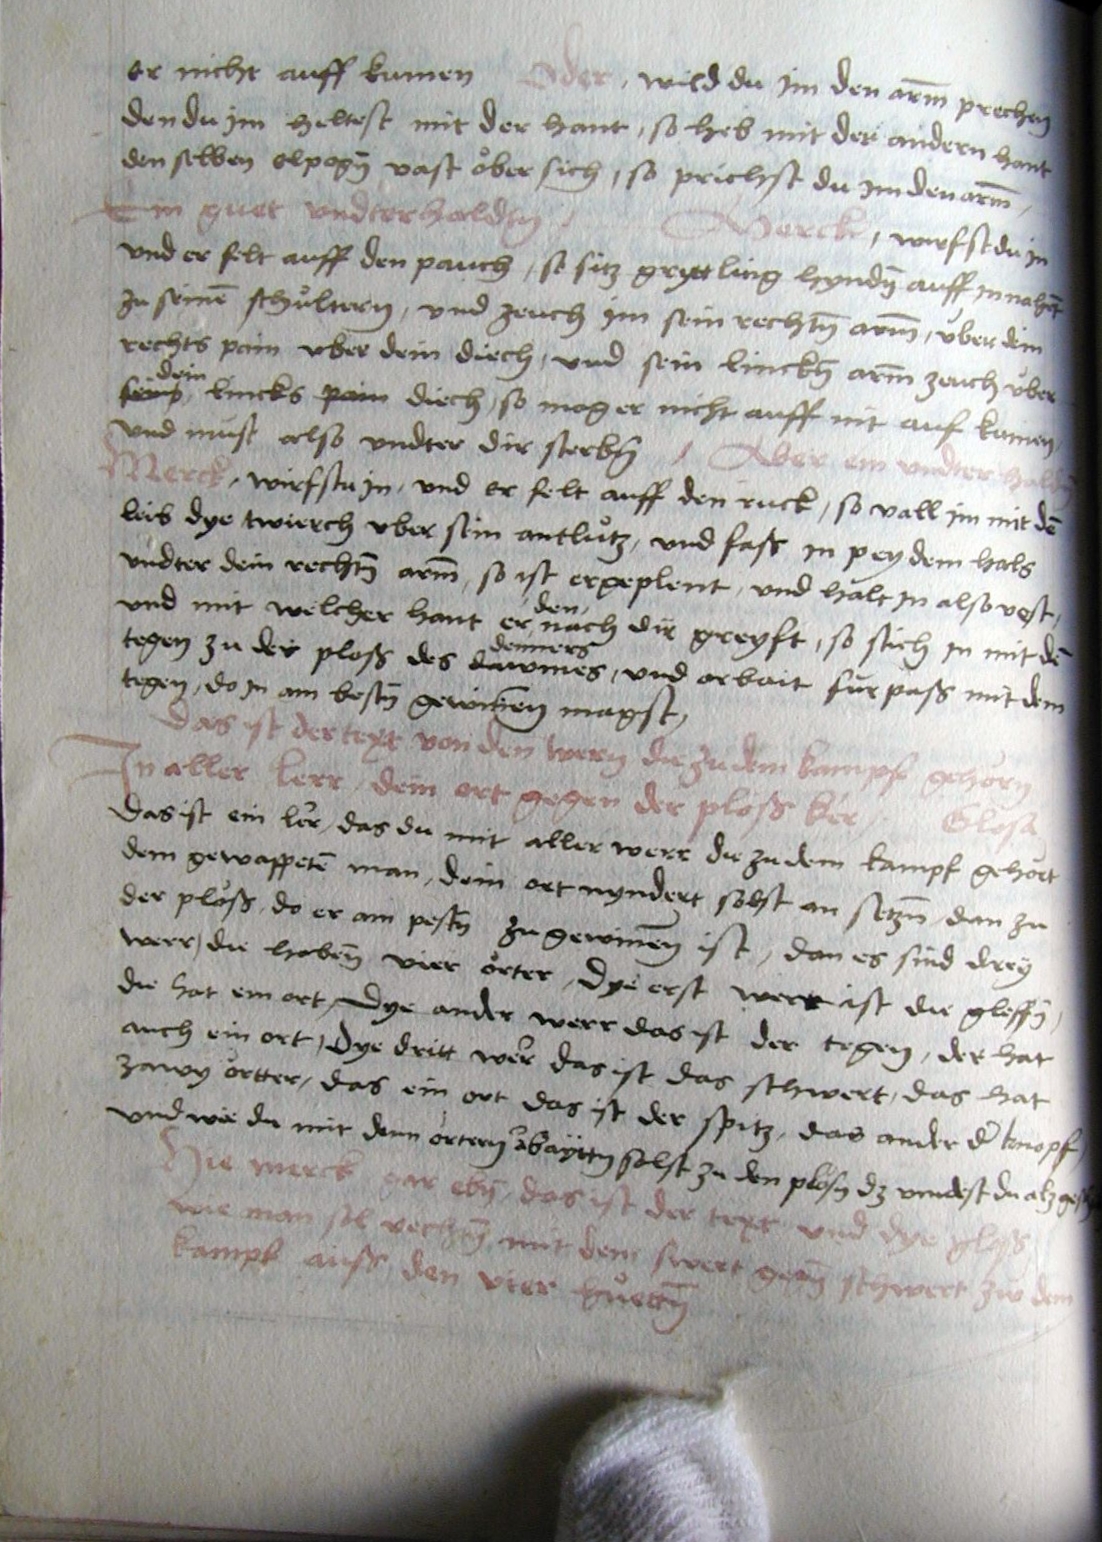 er nicht auff kumen Oder, wild du Im den arm̄ prechen
den du im heltest mit der hant, so heb mit der andern hant
den selben elpogn̄ vast öber sich, so prichst du Im den arm̄,
Ein guet vndterhaldtn̄, Merck, wirfst du in
vnd er felt auff den pauch, so sitz gryttling hyndn̄ auff In nahēt
zu seinē schůltern, vnd zeuch im sein rechtn̄ arm̄, über dein
rechts pain vber dein diech, vnd sein linckn̄ arm̄ zeuch über
dein
seins lincks pain diech, so mag er nicht auff nit auf kamen,
vnd must also vndter dir sterbn̄, Aber ein vndter haldn̄
Merck, wirfstu in, vnd er felt auff den ruck, so vall im mit dē
leib dye twierch vber sein antlůtz, vnd fass in pey dem hals
vndter dein rechtn̄ arm̄, so ist er geplent, vnd halt In also vest,
vnd mit welcher hant er den nach dir greyft, so stich In mit dē
tegen zu der ploss des dawmes denners, vnd arbait für pass mit dem
tegen, do In am bestn̄ gewinen magst,
Das ist der text von den wern die zu dem kampf gehörn
In aller lerr, dein ort gegen der ploss ker, Glosa
Das ist ein ler, das du mit aller werr die zu dem kampf gehört
dem gewappetē man, dein ort nyndert solst an setzn̄, dan zu
der plöss, do er am pestn̄ zu gewinen̄ ist, dan es sind drey
werr, die habenn̄ vier örter, Dye erst werr ist die gleffn̄,
die hat ein ort, Dye ander werr das ist der tegen, der hat
auch ein ort, Dye dritt wer das ist das schwert, das hat
zwy örtter, das ein ort das ist der spitz, das ander d' knopf,
vnd wie du mit denn örtern abayttn solst zu den plösn dz vindest du alz
Hie merck gar ebn̄, das ist der text vnd dye gloss
wie man sol vechtn̄ mit dem swert gegn̄ schwert zw dem
kampf auss den vier huettn̄